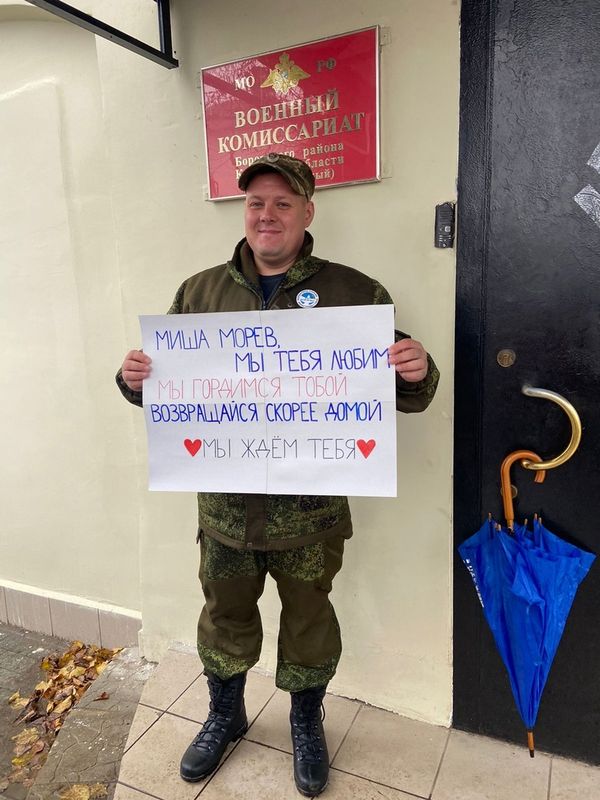 МО РФ
ВОЕННЫЙ
КОМИССАРИАТ
района
области
МИША МОРЕВ,
МЫ ТЕБЯ ЛЮБИМ
МЫ ГОРДИМСЯ ТОБОЙ
ВОЗВРАЩАЙСЯ СКОРЕЕ ДОМОЙ
МЫ ЖДЁМ ТЕБЯ